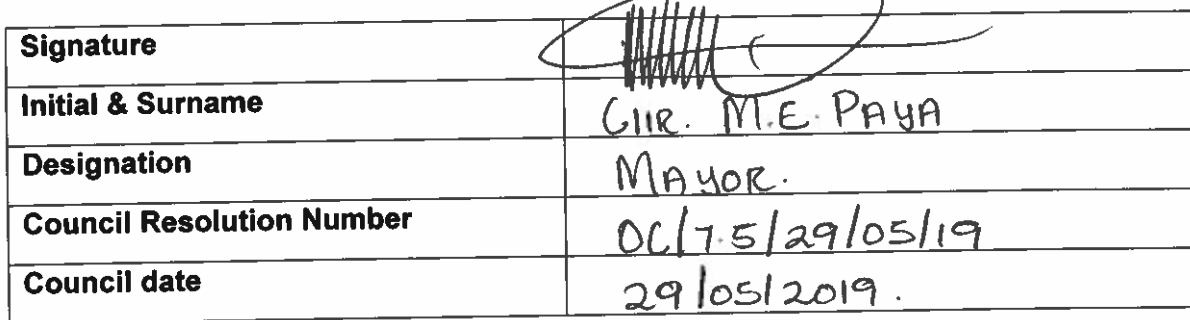 Signature
Initial & Surname Cllr. M.E. PAYA
Designation MAYOR.
Council Resolution Number OC/7.5/29/05/19
Council date 29/05/2019.